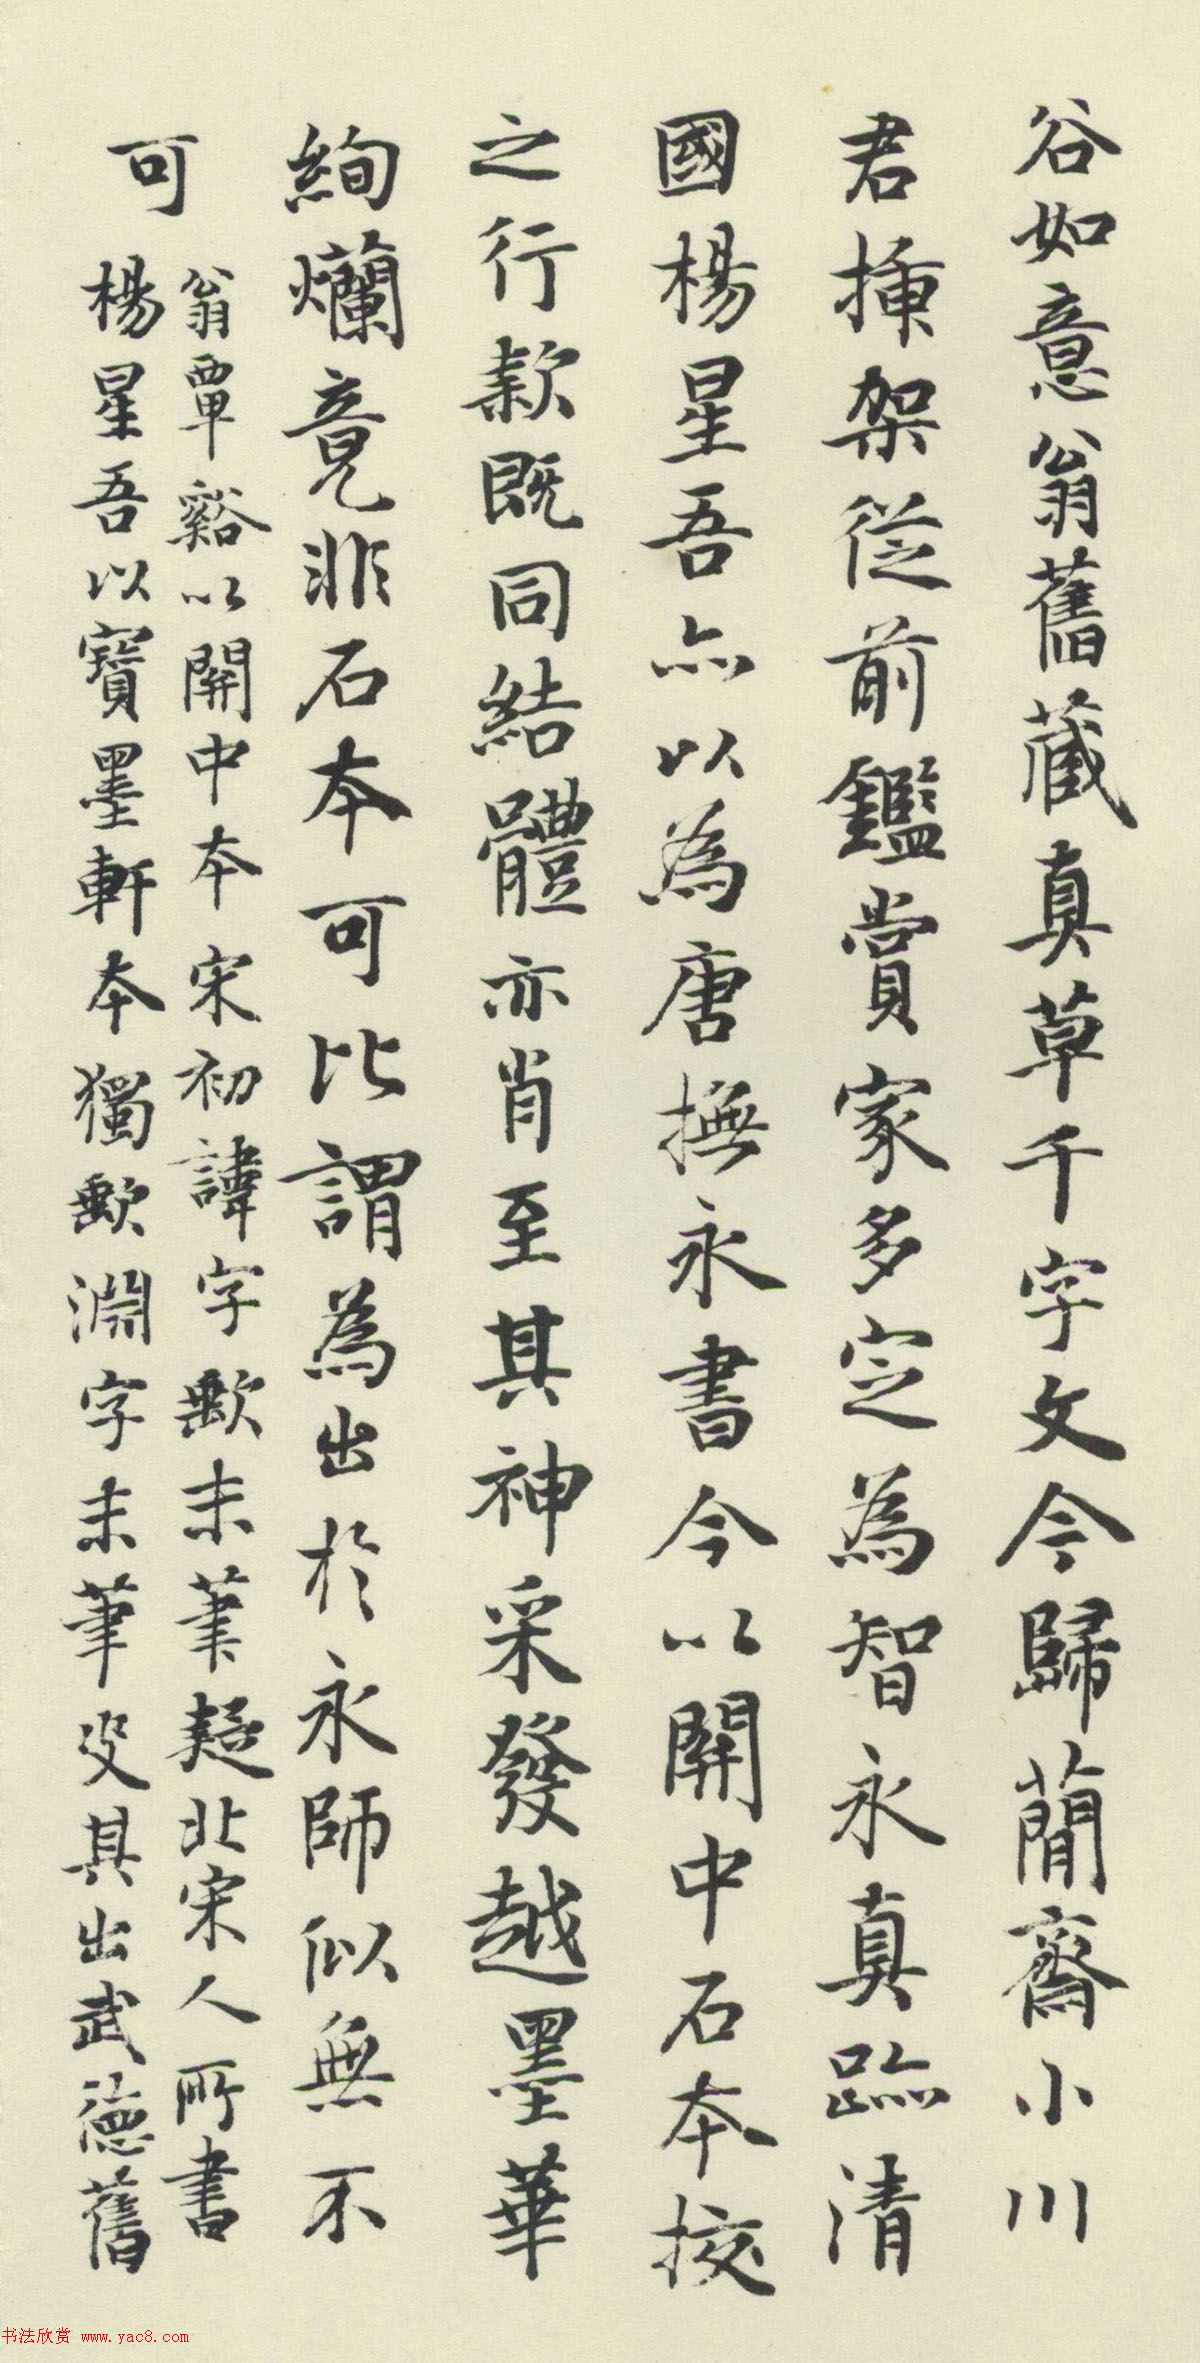 谷如意翁舊藏真草千字文今歸蕳齋小川
君揷架從前鑑賞家多定為智永真跡清
國楊星吾亦以為唐撫永書今以關中石本挍
之行款既同結體亦肖至其神采發越墨華
絢爛竟非石本可比謂為出於永師似無不
可
翁覃谿以關中本宋初諱字歟末筆疑北宋人所書
楊星吾以寶墨軒本獨歟淵字末筆㝎其出武德舊
书法欣赏 www.yac8.com